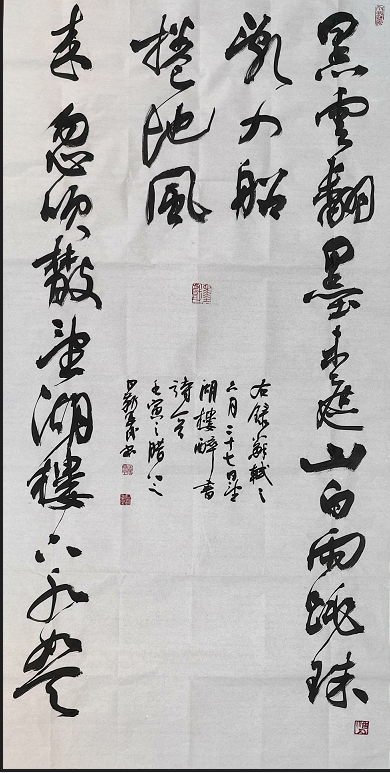 黑雲翻墨未遮山白雨跳珠
亂入船
捲地風
来忽吹散望湖樓下水如天
右錄蘇軾之
六月二十七日望
湖樓醉書
詩一首
壬寅之腊八之